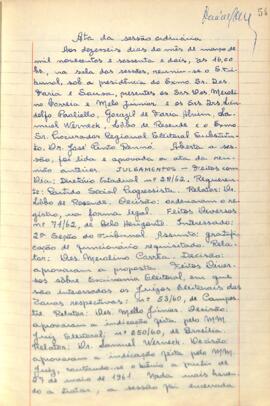 Ata da sessão ordinária
Aos dezesseis dias do mês de março de
mil novecentos e sessenta e dois, às 16,00
hs, na sala das sessões, reuniu-se o Tri-
bunal, sob a presidência do Exmo. Sr. Des.
Faria e Sousa, presentes os Srs. Des. Mero-
lino Corrêa e Melo Júnior e os Srs. Drs.
Fagiello, Gorazil de Faria Alvim, Sa-
muel Werneck, Lôbo de Resende e o Exmo.
Sr. Procurador Regional Eleitoral Substitu-
to, Dr. José Pinto Renno. Aberta a ses-
são, foi lida e aprovada a ata da reu-
nião anterior. JULGAMENTOS - Feitos em
Dia: Diretório Estadual nº 28/62. Requeren-
te: Partido Social Progressista. Relator: Dr.
Lôbo de Resende. Decisão: ordenaram o re-
gistro, na forma legal. Feitos Diversos
nº 71/62, de Belo Horizonte. Interessado:
2ª Seção do Tribunal. Assunto: gratifica-
ção de funcionário requisitado. Rela-
tor: Des. Merolino Corrêa. Decisão:
aprovaram a proposta. Feitos Diver-
sos sôbre Escrivania Eleitoral, em que
são interessados os Juízes Eleitorais das
Zonas respectivas: nº 53/60, de Campes-
tre. Relator: Des. Mello Júnior. Decisão:
aprovaram a indicação feita pelo MM.
Juiz Eleitoral. nº 250/60, de Brasília.
Relator: Dr. Samuel Werneck. Decisão:
aprovaram a indicação feita pelo MM.
Juiz, contando-se o biênio a partir de
27 de maio de 1961. Nada mais haven-
do a tratar, a sessão foi encerrada